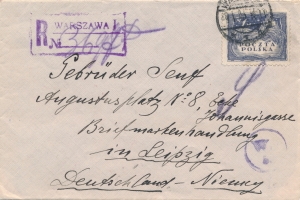 WARSZAWA 1
R
№
POCZTA
POLSKA
Gebrüder Senff
Augustusplatz No 8, Ecke
Johannisgasse
Briefmarkenhandlung
in Leipzig
Deutschland - Niemcy